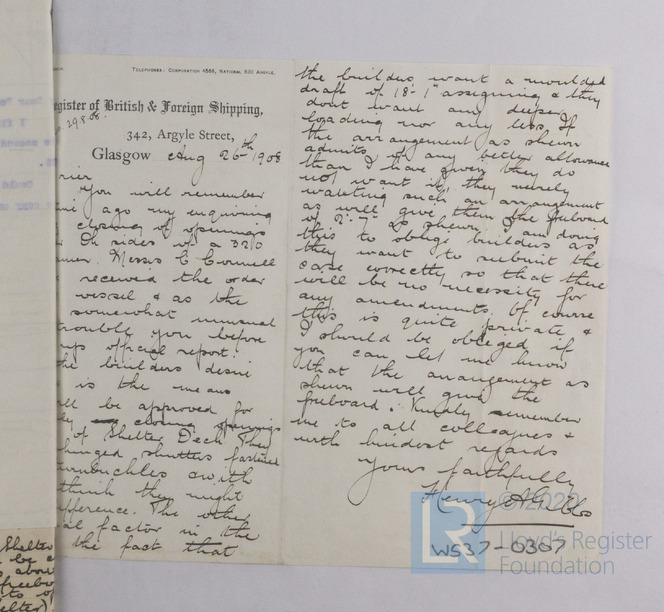 TELEPHONES: CORPORATION 4566, NATIONAL, 820 ARGYLE.
egister of British & Foreign Shipping,
29.8.08.
342, Argyle Street,
Glasgow Aug 26th 1908
rier
You will remember
ago my enquiring
closing of openings
in sides of a 320
amer. Messrs C Connell
received the order
vessel & as the
somewhat unusual
trouble you before
up official report.
he builders desire
is the means
ll be approved for
closing openings
of Shelter Deck. They
hinged shutters fastened
turnbuckles with
think they might
fference. The other
al factor in the
the fact that
the builders want a moulded
draft of 18'-1" assigning & they
dont want any deeper
loading nor any less. If
the arrangement as shewn
admits of any better allowance
than I have given they do
not want it, they merely
such an arrangement
as will give them the freeboard
of 2'-7" as shewn. I am doing
this to oblige builders as
they want to submit the
case correctly so that there
will be no necessity for
any amendments. Of course
this is quite private, &
I should be obliged if
you can let me know
that the arrangement as
shewn will give the
freeboard. Kindly remember
me to all colleagues &
with kindest regards
Yours faithfully
Henry
WS37-0307
© 2020
LR
Lloyd's Register
Foundation
Shelter
be
abou
freebo
to
elter)